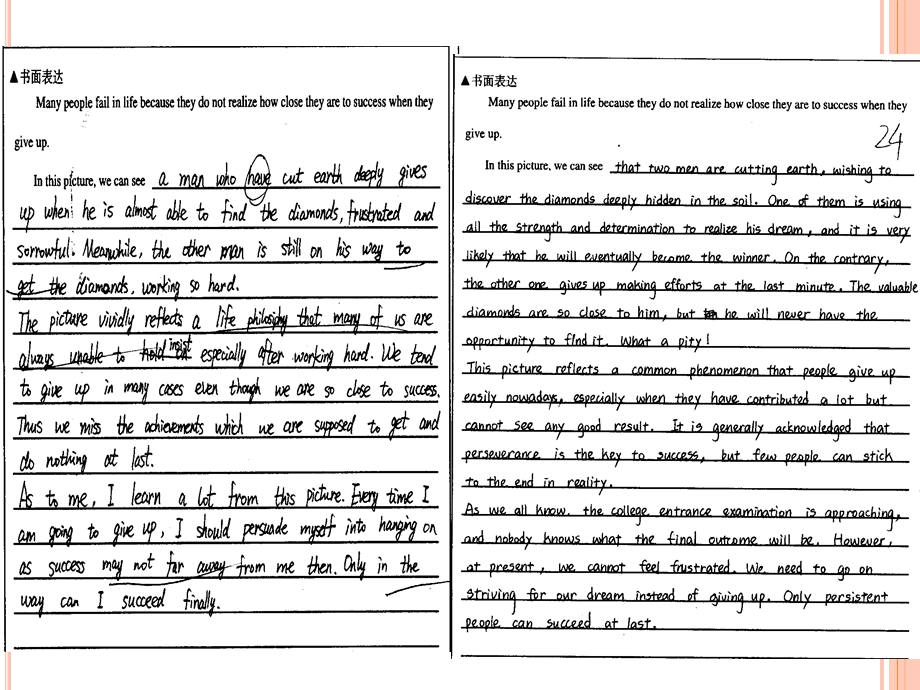 ▲书面表达
Many people fail in life because they do not realize how close they are to success when they
give up.
In this picture, we can see a man who have cut earth deeply gives
up when he is almost able to find the diamonds, frustrated and
sorrowful. Meanwhile, the other man is still on his way to
get the diamonds, working so hard.
The picture vividly reflects a life philosophy that many of us are
always unable to insist especially after working hard. We tend
to give up in many cases even though we are so close to success.
Thus we miss the achievements which we are supposed to get and
do nothing at last.
As to me, I learn a lot from this picture. Every time I
am going to give up, I should persuade myself into hanging on
as success may not far away from me then. Only in the
way can I succeed finally.
▲书面表达
Many people fail in life because they do not realize how close they are to success when they
give up.
24
In this picture, we can see that two men are cutting earth, wishing to
discover the diamonds deeply hidden in the soil. One of them is using
all the strength and determination to realize his dream, and it is very
likely that he will eventually become the winner. On the contrary,
the other one gives up making efforts at the last minute. The valuable
diamonds are so close to him, but he will never have the
opportunity to find it. What a pity!
This picture reflects a common phenomenon that people give up
easily nowadays, especially when they have contributed a lot but
cannot see any good result. It is generally acknowledged that
perseverance is the key to success, but few people can stick
to the end in reality.
As we all know, the college entrance examination is approaching,
and nobody knows what the final outcome will be. However,
at present, we cannot feel frustrated. We need to go on
striving for our dream instead of giving up. Only persistent
people can succeed at last.